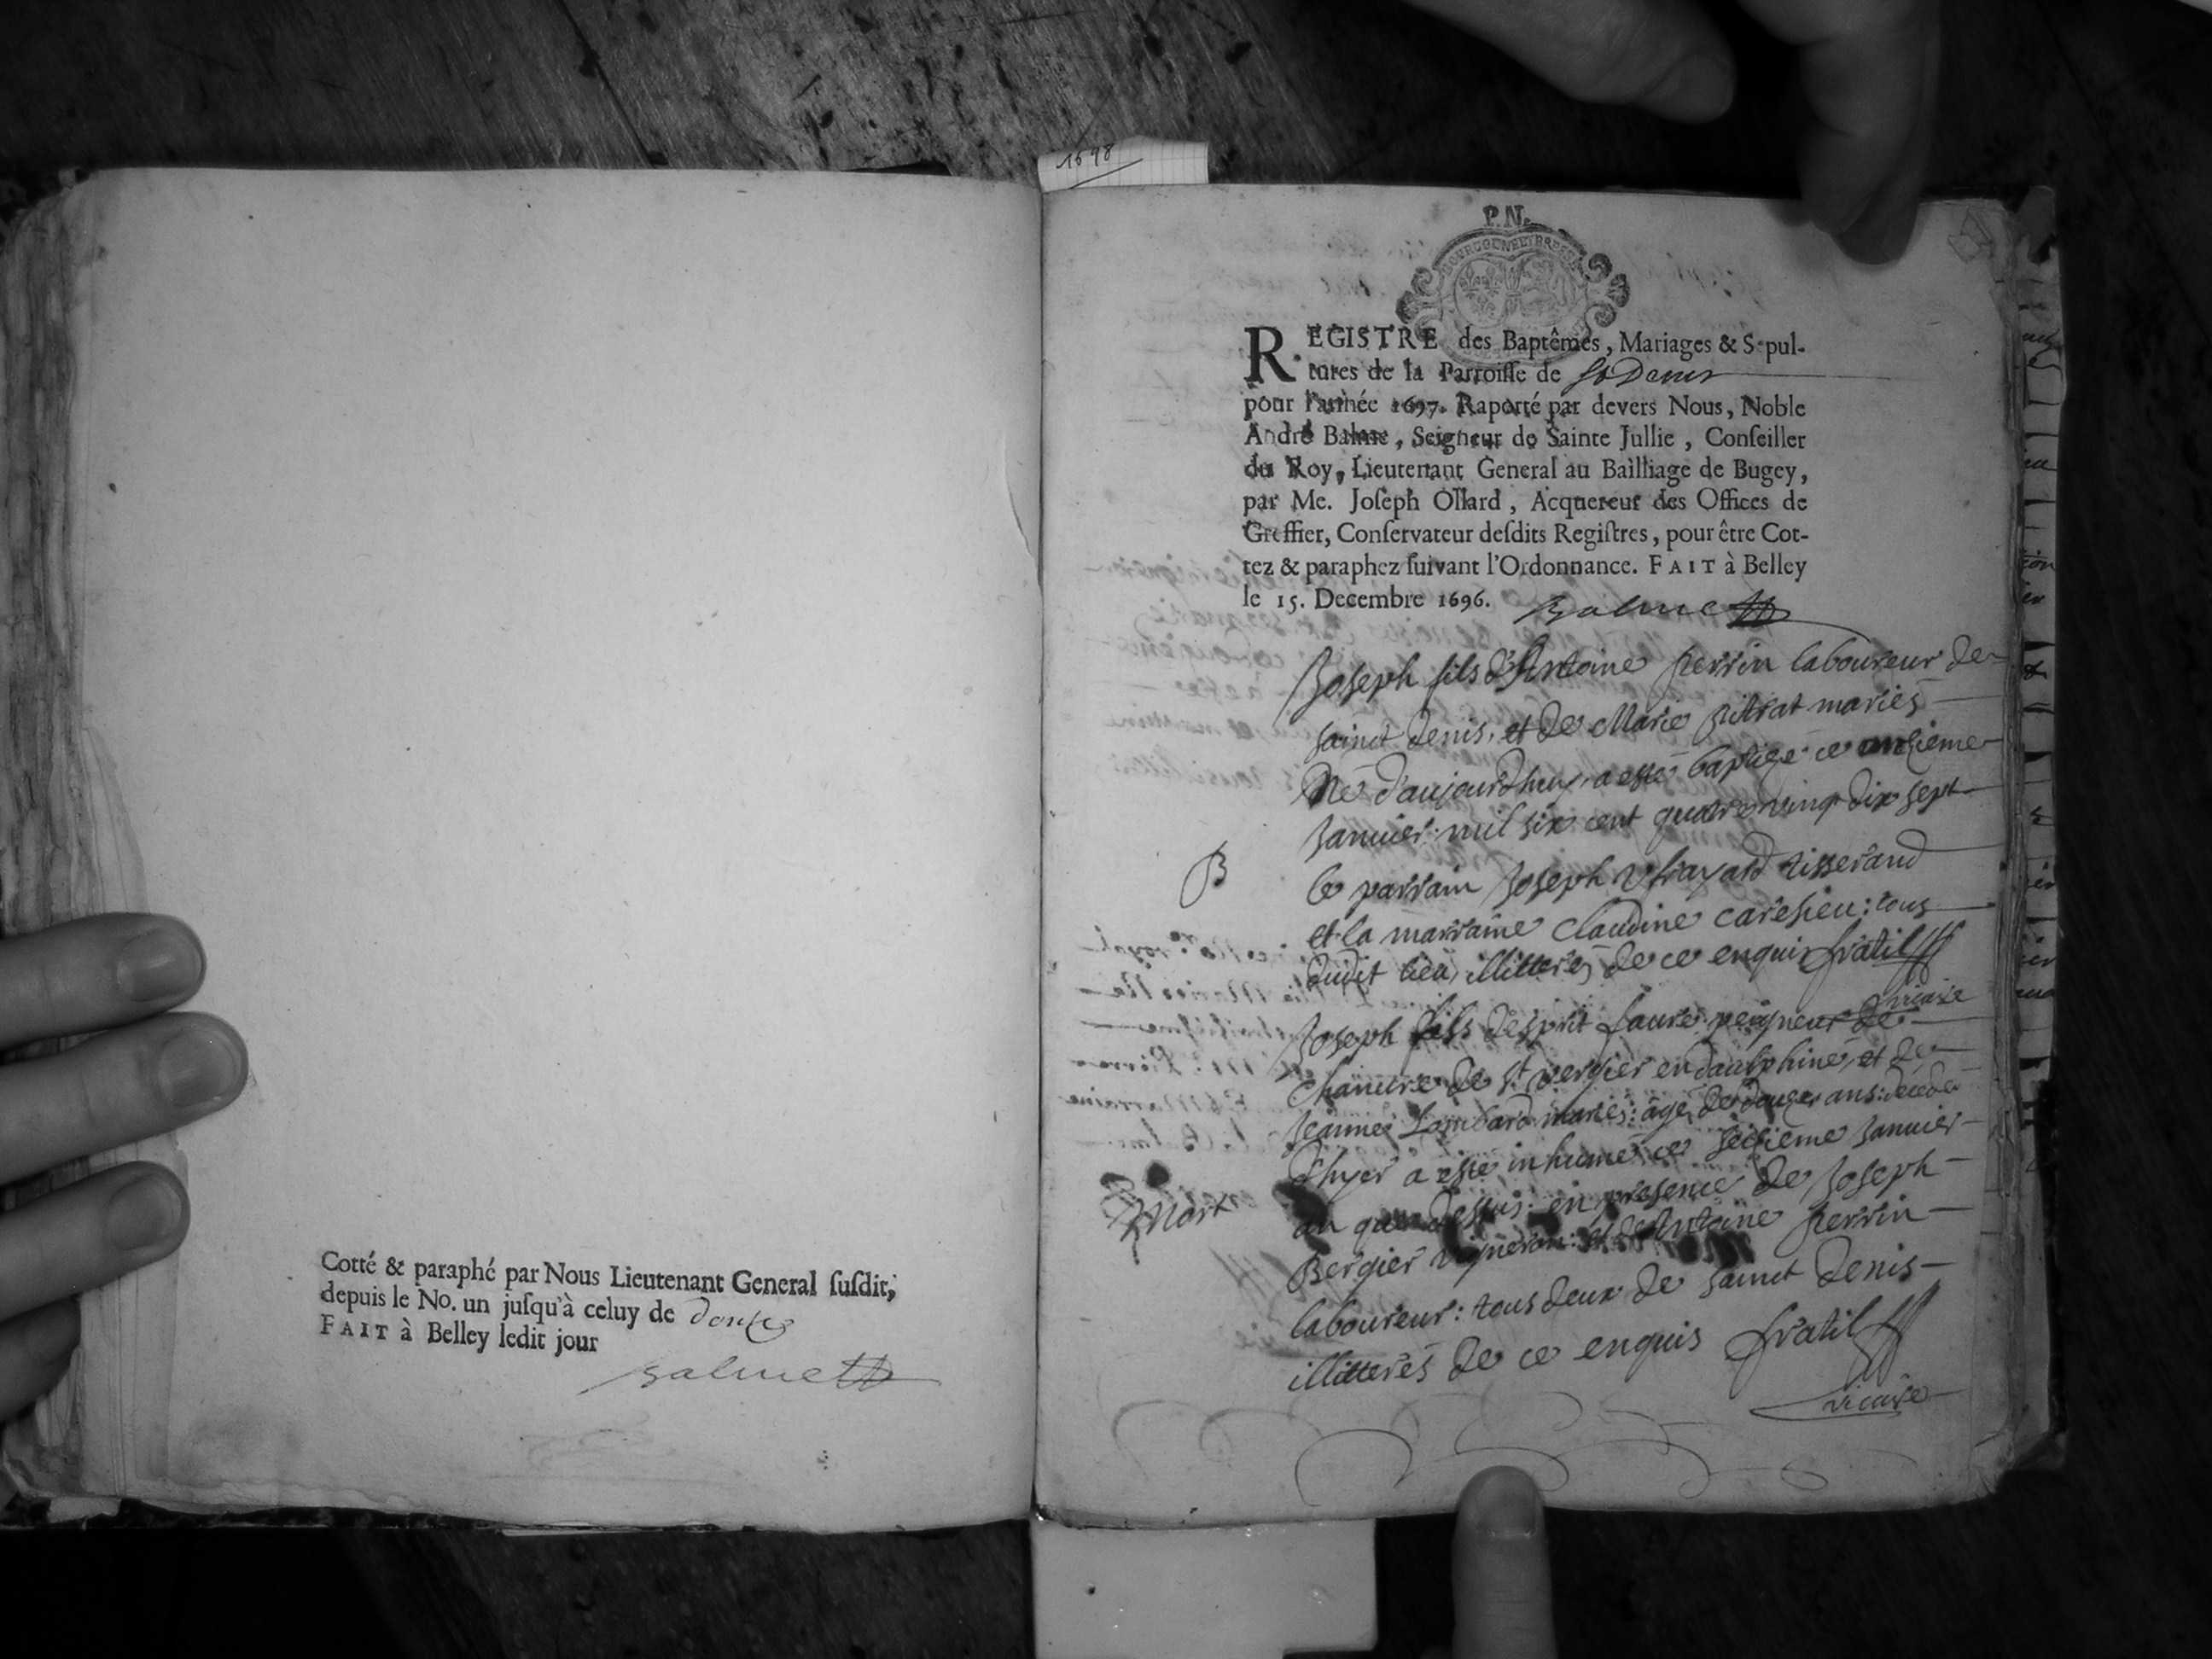 Cotté & paraphé par Nous Lieutenant General ſuſdit,
depuis le No. un juſqu'à celuy de douze
FAIT à Belley ledit jour
Balme
1698
P.N.
BOURGOGNE ET BRESSE
REGISTRE des Baptêmes, Mariages & Sepul-
tures de la Parroiſſe de St Denis
pour l'année 1697. Raporté par devers Nous, Noble
André Balme, Seigneur de Sainte Jullie, Conſeiller
du Roy, Lieutenant General au Bailliage de Bugey,
par Me. Joſeph Ollard, Acquereur des Offices de
Greffier, Conſervateur deſdits Regiſtres, pour être Cot-
tez & paraphez ſuivant l'Ordonnance. FAIT à Belley
le 15. Decembre 1696.
Balme
Joseph fils d'Antoine perrin laboureur de
sainct denis, et de Marie pitrat mariés
Né d'aujourdhuy, a esté baptizé ce onzieme
Januier mil six cent quatre vingt dix sept
B
le parrain Joseph tisserand
et la marraine Claudine caresieu: tous
dudit lieu, illitterés de ce enquis fratil
vicaire
Joseph fils desprit faure peigneur de
chanure de St vergier en dauphiné, et de
Jeanne Lombard mariés: agé de douze ans: decedé
d'hyer a esté inhumé ce seizieme Januier
Mort
an que dessus: en presence de Joseph
Bergier vigneron: et d'Antoine perrin
laboureur: tous deux de sainct denis
illitterés de ce enquis fratil
vicaire